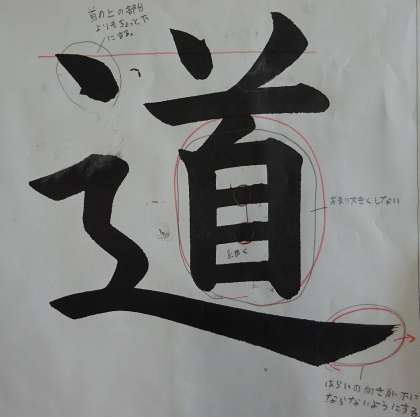 首の上の部分
よりもちょっと下
にする。
道
あまり大きくしない
はらいの向きが
ならないようにする